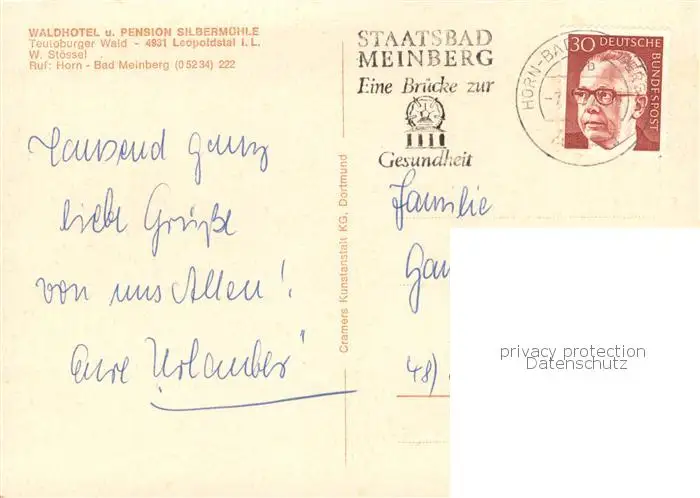 WALDHOTEL u. PENSION SILBERMÜHLE
Teutoburger Wald - 4931 Leopoldstal i. L.
W. Stössel
Ruf: Horn - Bad Meinberg (0 52 34) 222
STAATSBAD
MEINBERG
Eine Brücke zur
Gesundheit
HORN-BAD
30 DEUTSCHE
BUNDESPOST
Tausend ganz
liebe Grüße
von uns Allen!
Eure Urlauber!
Cramers Kunstanstalt KG. Dortmund
Familie
48)
privacy protection
Datenschutz